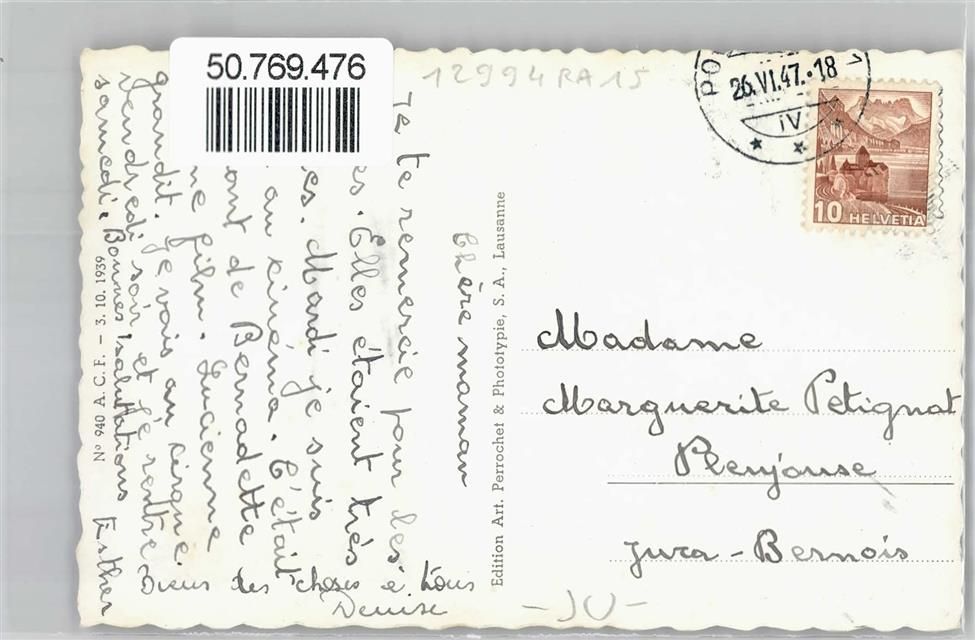 50.769.476
12994RA15
PO
26.VI.47.-18
IV
10 HELVETIA
Chère maman
Je te remercie pour les
es. Elles étaient très
es. Mardi je suis
au cinéma. C'était
ont de Bernadette
ne film. Lucienne
grandit. Je vais au cirque
Vendredi soir et je rentre
samedi. Bonnes salutations Esther
des choses à tous
Denise
Nº 940 A. C. F. – 3. 10. 1939
Edition Art. Perrochet & Phototypie, S. A., Lausanne
Madame
Marguerite Petignat
Plenjouse
Jura-Bernois
-JU-